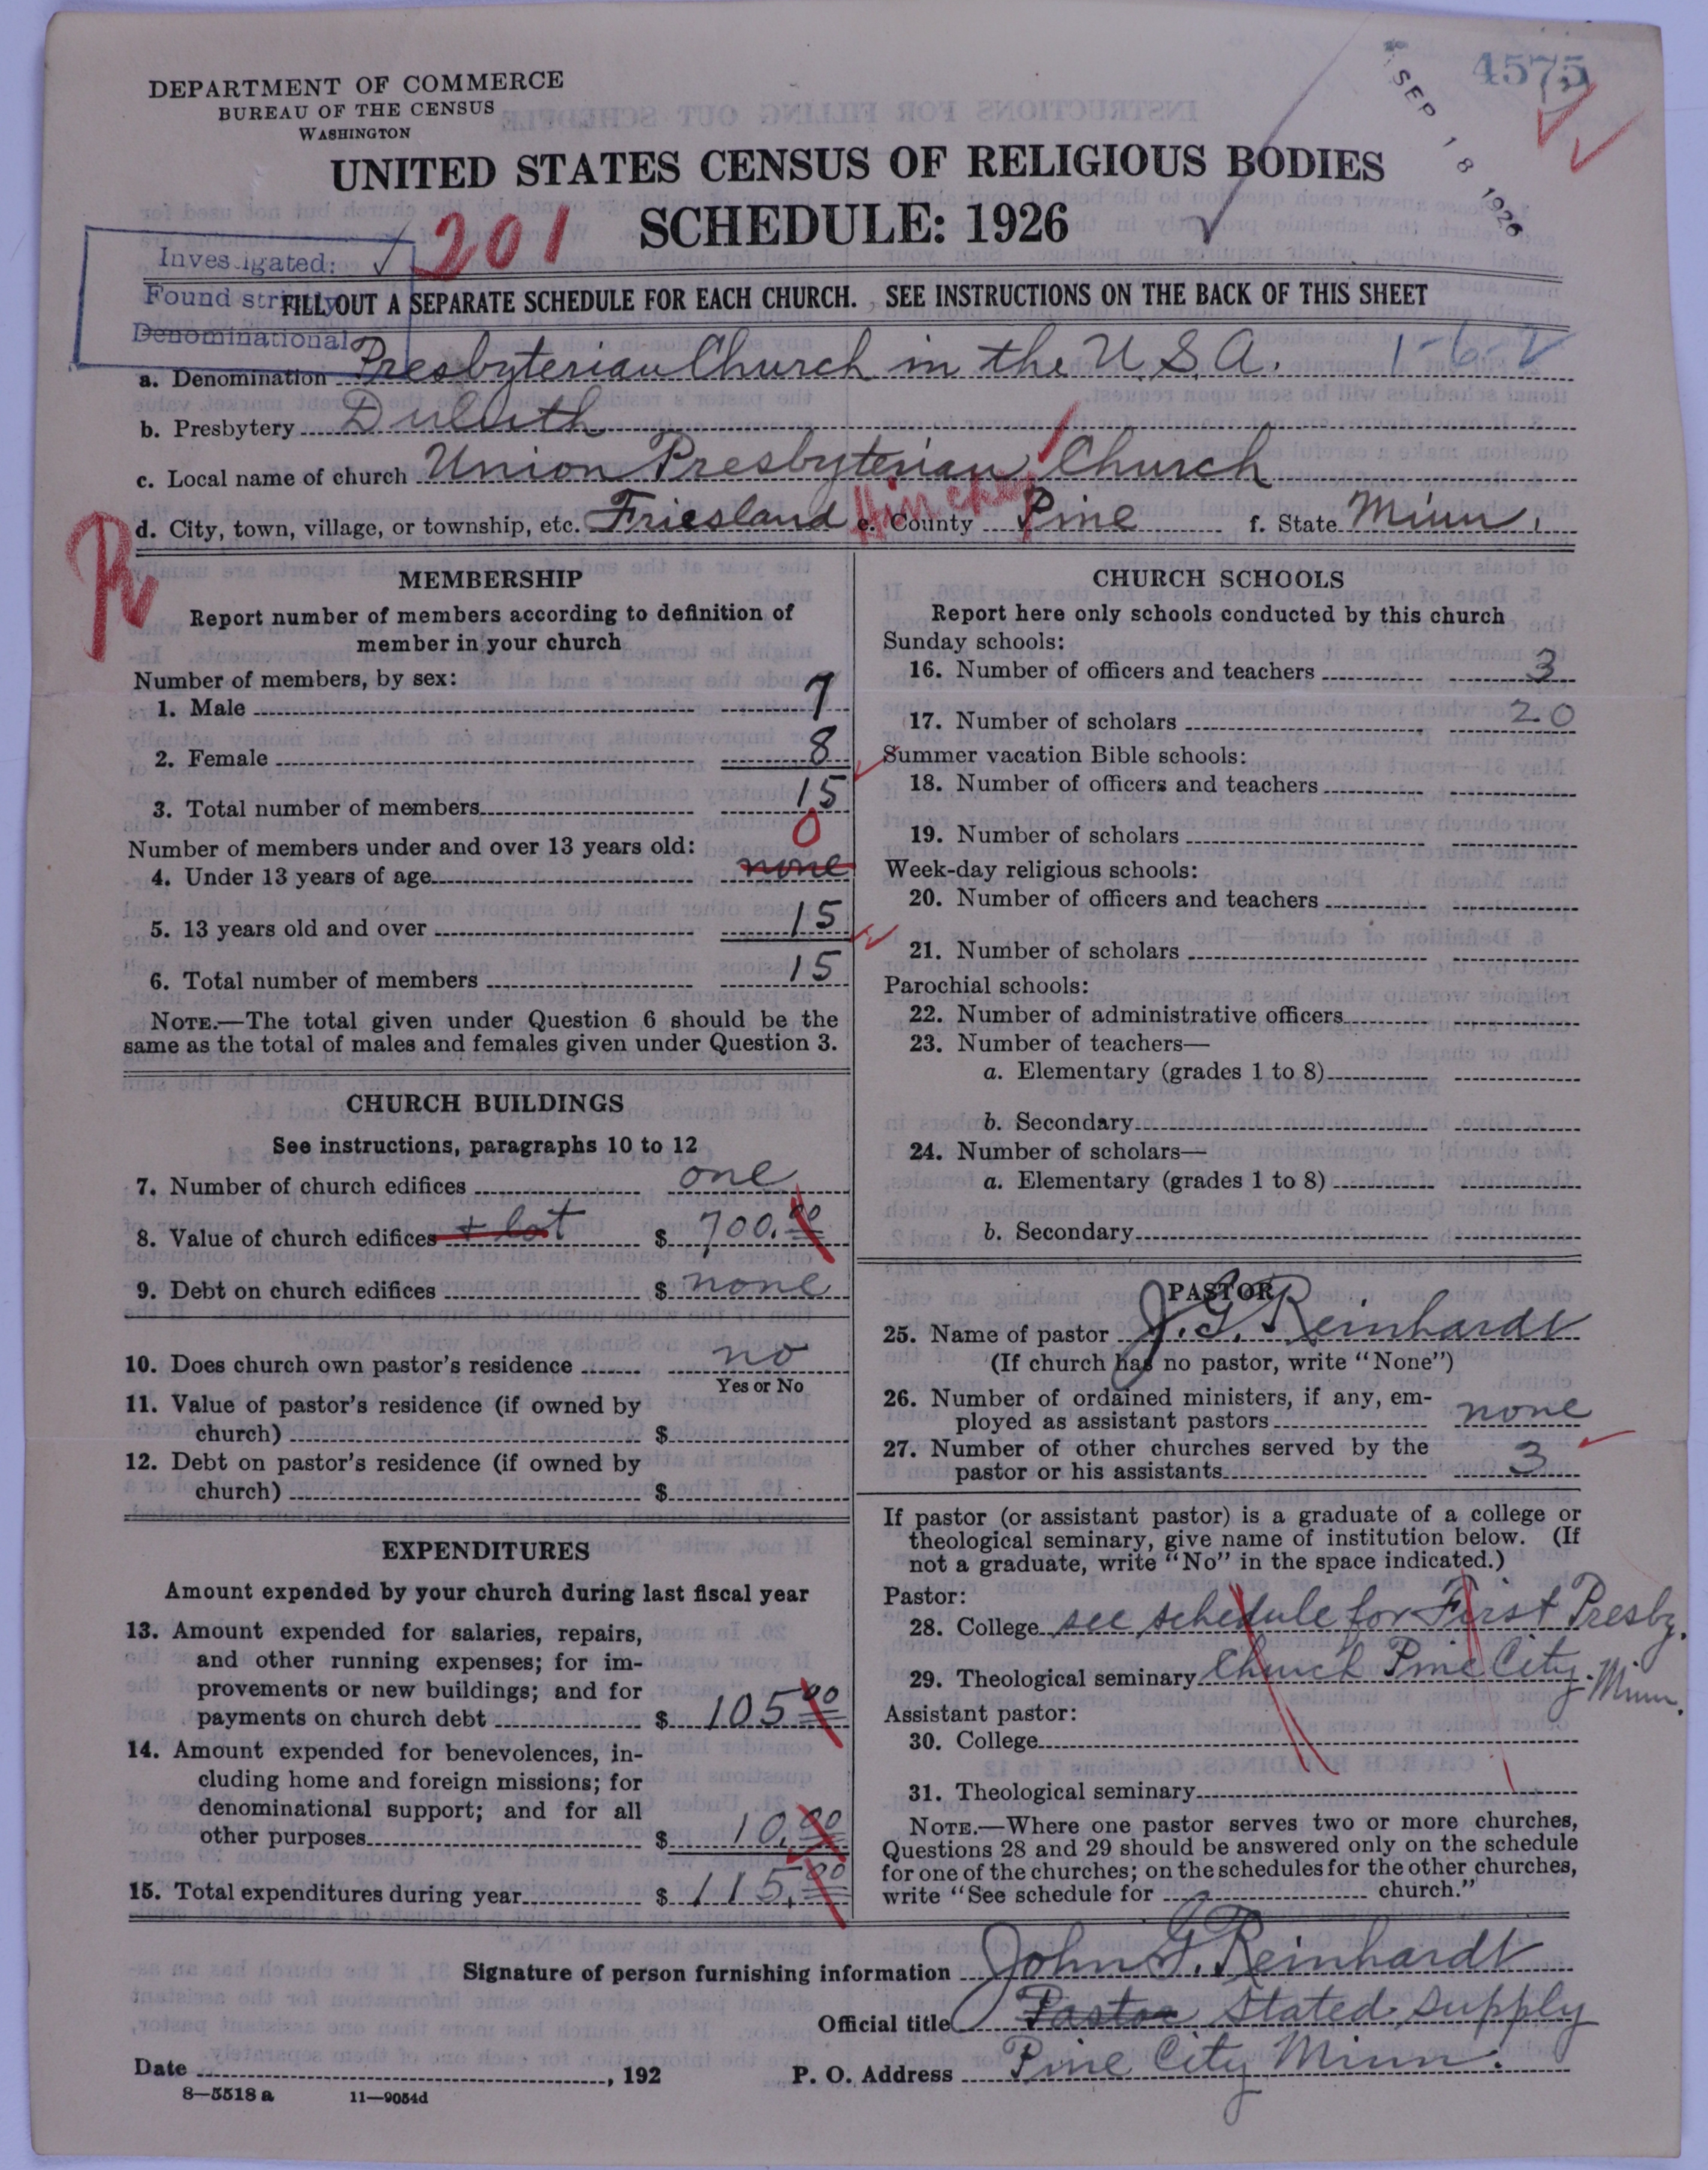 4575
SEP 18 1926
DEPARTMENT OF COMMERCE
BUREAU OF THE CENSUS
WASHINGTON
UNITED STATES CENSUS OF RELIGIOUS BODIES
SCHEDULE: 1926
201
Investigated:
Found strictly
Denominational
FILL OUT A SEPARATE SCHEDULE FOR EACH CHURCH. SEE INSTRUCTIONS ON THE BACK OF THIS SHEET
a. Denomination Presbyterian Church in the U.S.A. 1-6-2
b. Presbytery Duluth
c. Local name of church Union Presbyterian Church
d. City, town, village, or township, etc. Friesland e. County Pine f. State Minn.
MEMBERSHIP
Report number of members according to definition of
member in your church
Number of members, by sex:
1. Male 7
2. Female 8
3. Total number of members 15
0
Number of members under and over 13 years old:
4. Under 13 years of age none
5. 13 years old and over 15
6. Total number of members 15
NOTE.—The total given under Question 6 should be the
same as the total of males and females given under Question 3.
CHURCH BUILDINGS
See instructions, paragraphs 10 to 12
7. Number of church edifices one
8. Value of church edifices + lot $ 700.00
9. Debt on church edifices $ none
10. Does church own pastor's residence no
Yes or No
11. Value of pastor's residence (if owned by
church) $
12. Debt on pastor's residence (if owned by
church) $
EXPENDITURES
Amount expended by your church during last fiscal year
13. Amount expended for salaries, repairs,
and other running expenses; for im-
provements or new buildings; and for
payments on church debt $ 105 00
14. Amount expended for benevolences, in-
cluding home and foreign missions; for
denominational support; and for all
other purposes $ 10.00
15. Total expenditures during year $ 115.00
CHURCH SCHOOLS
Report here only schools conducted by this church
Sunday schools:
16. Number of officers and teachers 3
17. Number of scholars 20
Summer vacation Bible schools:
18. Number of officers and teachers
19. Number of scholars
Week-day religious schools:
20. Number of officers and teachers
21. Number of scholars
Parochial schools:
22. Number of administrative officers
23. Number of teachers—
a. Elementary (grades 1 to 8)
b. Secondary
24. Number of scholars—
a. Elementary (grades 1 to 8)
b. Secondary
PASTOR
25. Name of pastor J. G. Reinhardt
(If church has no pastor, write "None")
26. Number of ordained ministers, if any, em-
ployed as assistant pastors none
27. Number of other churches served by the
pastor or his assistants 3
If pastor (or assistant pastor) is a graduate of a college or
theological seminary, give name of institution below. (If
not a graduate, write "No" in the space indicated.)
Pastor:
28. College see schedule for First Presby.
29. Theological seminary Church Pine City. Minn.
Assistant pastor:
30. College
31. Theological seminary
NOTE.—Where one pastor serves two or more churches,
Questions 28 and 29 should be answered only on the schedule
for one of the churches; on the schedules for the other churches,
write "See schedule for church."
Signature of person furnishing information John G. Reinhardt
Official title Pastor Stated supply
Date , 192 P. O. Address Pine City Minn.
8—5518 a 11—9054d